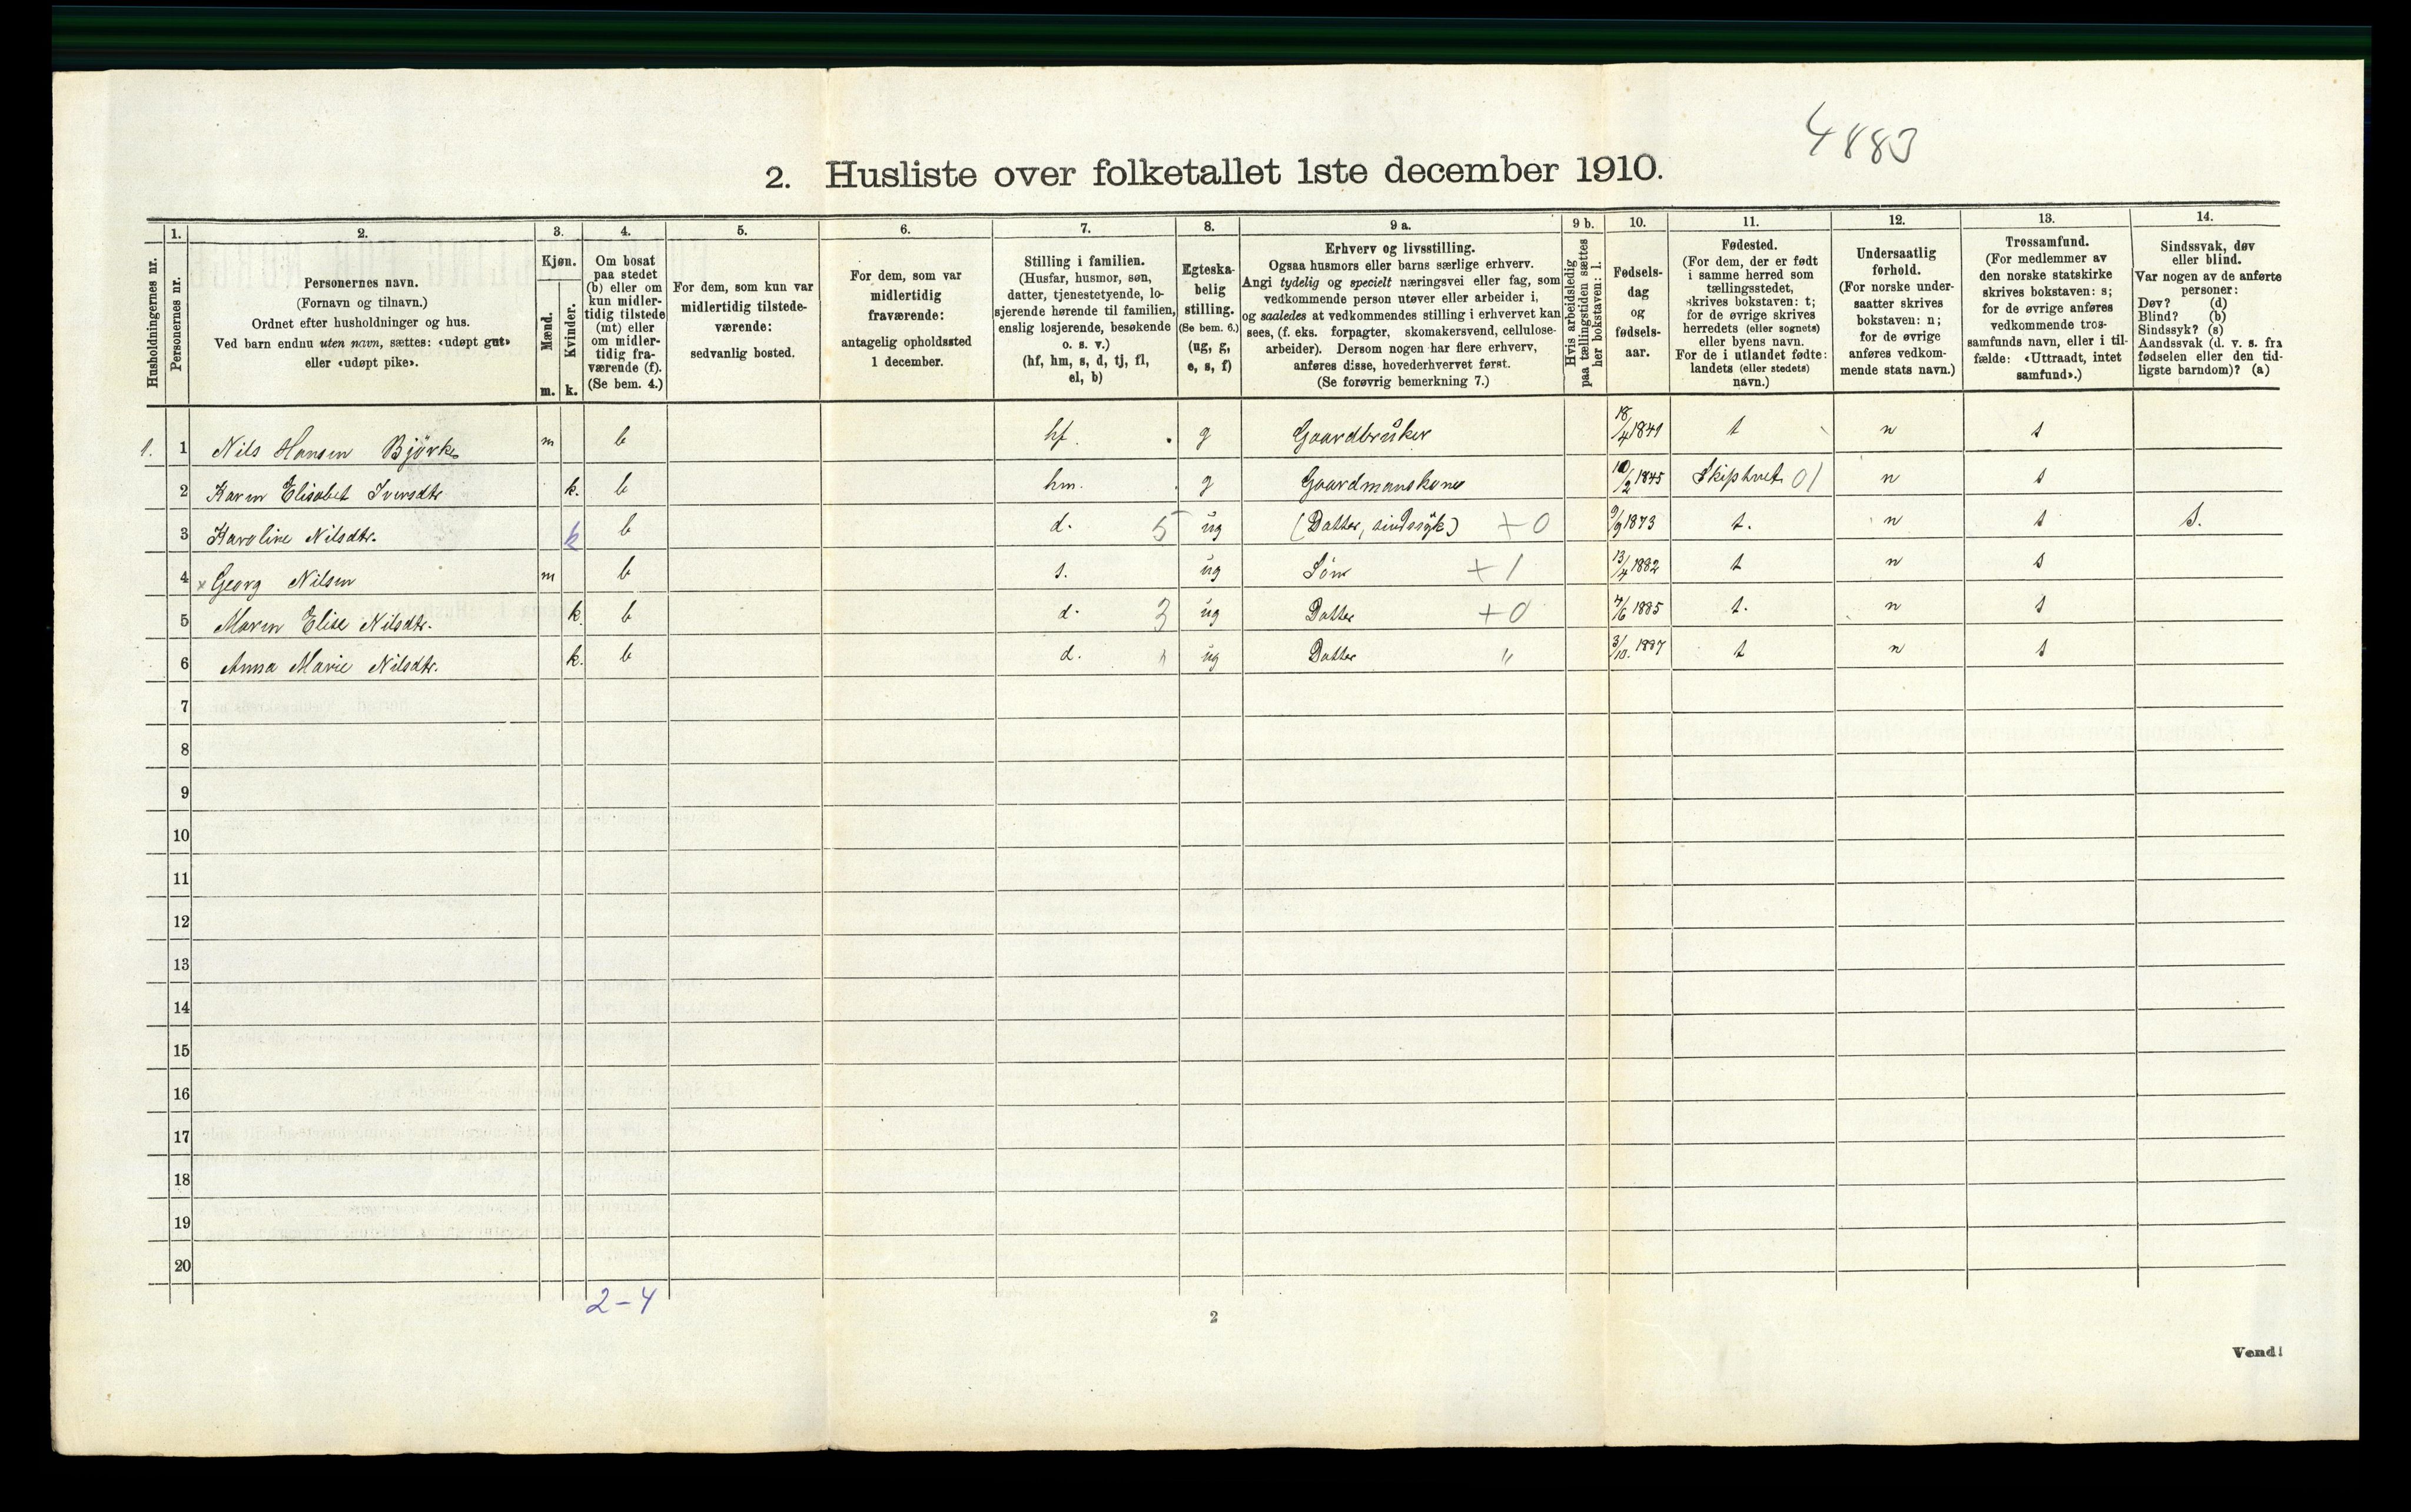 4883
2. Husliste over folketallet 1ste december 1910.
Husholdningernes nr.
1.
Personernes nr.
2.
Personernes navn.
(Fornavn og tilnavn.)
Ordnet efter husholdninger og hus.
Ved barn endnu uten navn, sættes: «udøpt gut»
eller «udøpt pike».
3.
Kjøn.
Mænd.
Kvinder.
m. k.
4.
Om bosat
paa stedet
(b) eller om
kun midler-
tidig tilstede
(mt) eller
om midler-
tidig fra-
værende (f).
(Se bem. 4.)
5.
For dem, som kun var
midlertidig tilstede-
værende:
sedvanlig bosted.
6.
For dem, som var
midlertidig
fraværende:
antagelig opholdssted
1 december.
7.
Stilling i familien.
(Husfar, husmor, søn,
datter, tjenestetyende, lo-
sjerende hørende til familien,
enslig losjerende, besøkende
o. s. v.)
(hf, hm, s, d, tj, fl,
el, b)
8.
Egteska-
belig
stilling.
(Se bem. 6.)
(ug, g,
e, s, f)
9 a.
Erhverv og livsstilling.
Ogsaa husmors eller barns særlige erhverv.
Angi tydelig og specielt næringsvei eller fag, som
vedkommende person utøver eller arbeider i,
og saaledes at vedkommendes stilling i erhvervet kan
sees, (f. eks. forpagter, skomakersvend, cellulose-
arbeider). Dersom nogen har flere erhverv,
anføres disse, hovederhvervet først.
(Se forøvrig bemerkning 7.)
9 b.
Hvis arbeidsledig
paa tællingstiden sættes
her bokstaven: l.
10.
Fødsels-
dag
og
fødsels-
aar.
11.
Fødested.
(For dem, der er født
i samme herred som
tællingsstedet,
skrives bokstaven: t;
for de øvrige skrives
herredets (eller sognets)
eller byens navn.
For de i utlandet fødte:
landets (eller stedets)
navn.)
12.
Undersaatlig
forhold.
(For norske under-
saatter skrives
bokstaven: n;
for de øvrige
anføres vedkom-
mende stats navn.)
13.
Trossamfund.
(For medlemmer av
den norske statskirke
skrives bokstaven: s;
for de øvrige anføres
vedkommende tros-
samfunds navn, eller i til-
fælde: «Uttraadt, intet
samfund».)
14.
Sindssvak, døv
eller blind.
Var nogen av de anførte
personer:
Døv? (d)
Blind? (b)
Sindssyk? (s)
Aandssvak (d. v. s. fra
fødselen eller den tid-
ligste barndom)? (a)
1. 1 Nils Hansen Björke m b hf. g Gaardbrüker 18/4 1841 t n s
2 Karen Elisabet Iversdtr k. b hm. g Gaardmanskone 10/2 1845 Skiptvet 01 n s
3 Karoline Nilsdtr. k b d. 5 ug (Datter, sindssyk) +0 9/9 1873 t. n s S.
4 x Georg Nilsen m b s. ug Sön +1 13/4 1882 t n s
5 Maren Elise Nilsdtr. k. b d. 3 ug Datter +0 7/6 1885 t. n s
6 Anna Marie Nilsdtr. k. b d. " ug Datter " 3/10. 1887 t n s
7
8
9
10
11
12
13
14
15
16
17
18
19
20
2-4
2
Vend!